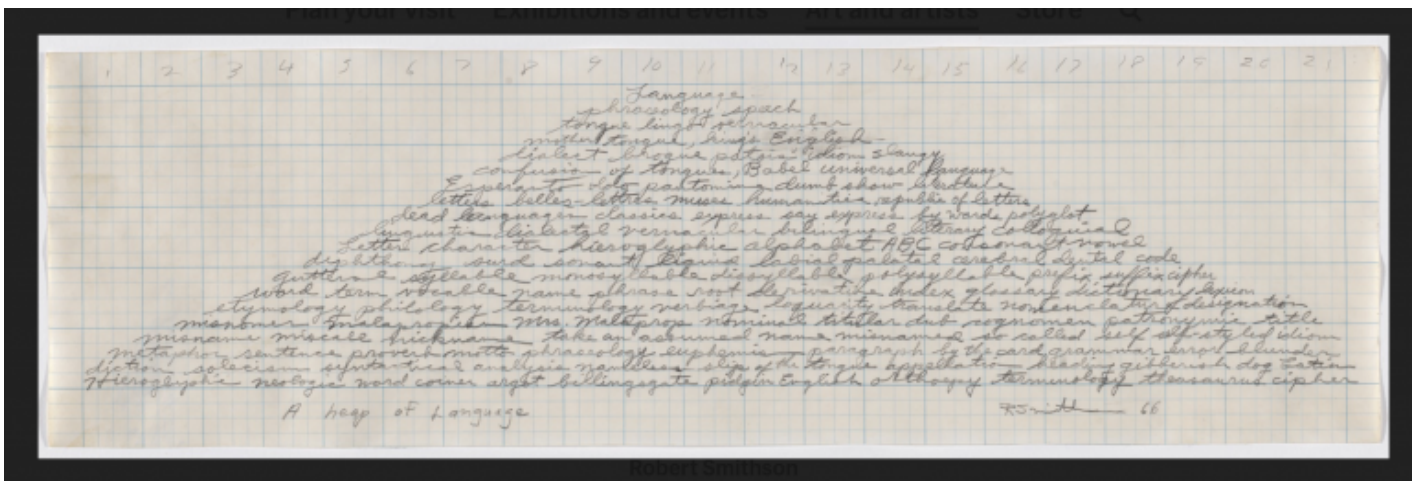 Plan your visit Exhibitions and events Art and artists Store
1 2 3 4 5 6 7 8 9 10 11 12 13 14 15 16 17 18 19 20 21
Language
phraseology speech
tongue lingo vernacular
mother tongue, king's English
dialect brogue patois idiom slang
confusion of tongues, Babel universal language
Esperanto Ido pantomime dumb show literature
letters belles-lettres muses humanities republic of letters
dead languages classics express say express by words polyglot
linguistic dialectal vernacular bilingual literary colloquial
letter character hieroglyphic alphabet ABC consonant vowel
diphthong surd sonant liquid labial palatal cerebral dental code
guttural syllable monosyllable dissyllable polysyllable prefix suffix cipher
word term vocable name phrase root derivative index glossary dictionary lexicon
etymology philology terminology verbiage loquacity translate nomenclature designation
misnomer malapropism Mrs Malaprop nominal titular dub cognomen patronymic title
misname miscall nickname take an assumed name misnamed so called self self-styled idiom
metaphor sentence proverb motto phraseology euphemism paragraph by the card grammar error blunder
diction solecism syntactical analysis slip of the tongue appellation gibberish dog Latin
Hieroglyphic neologic word coiner argot billingsgate pidgin English orthoepy terminology thesaurus cipher
A heap of Language
RSmith 66
Robert Smithson